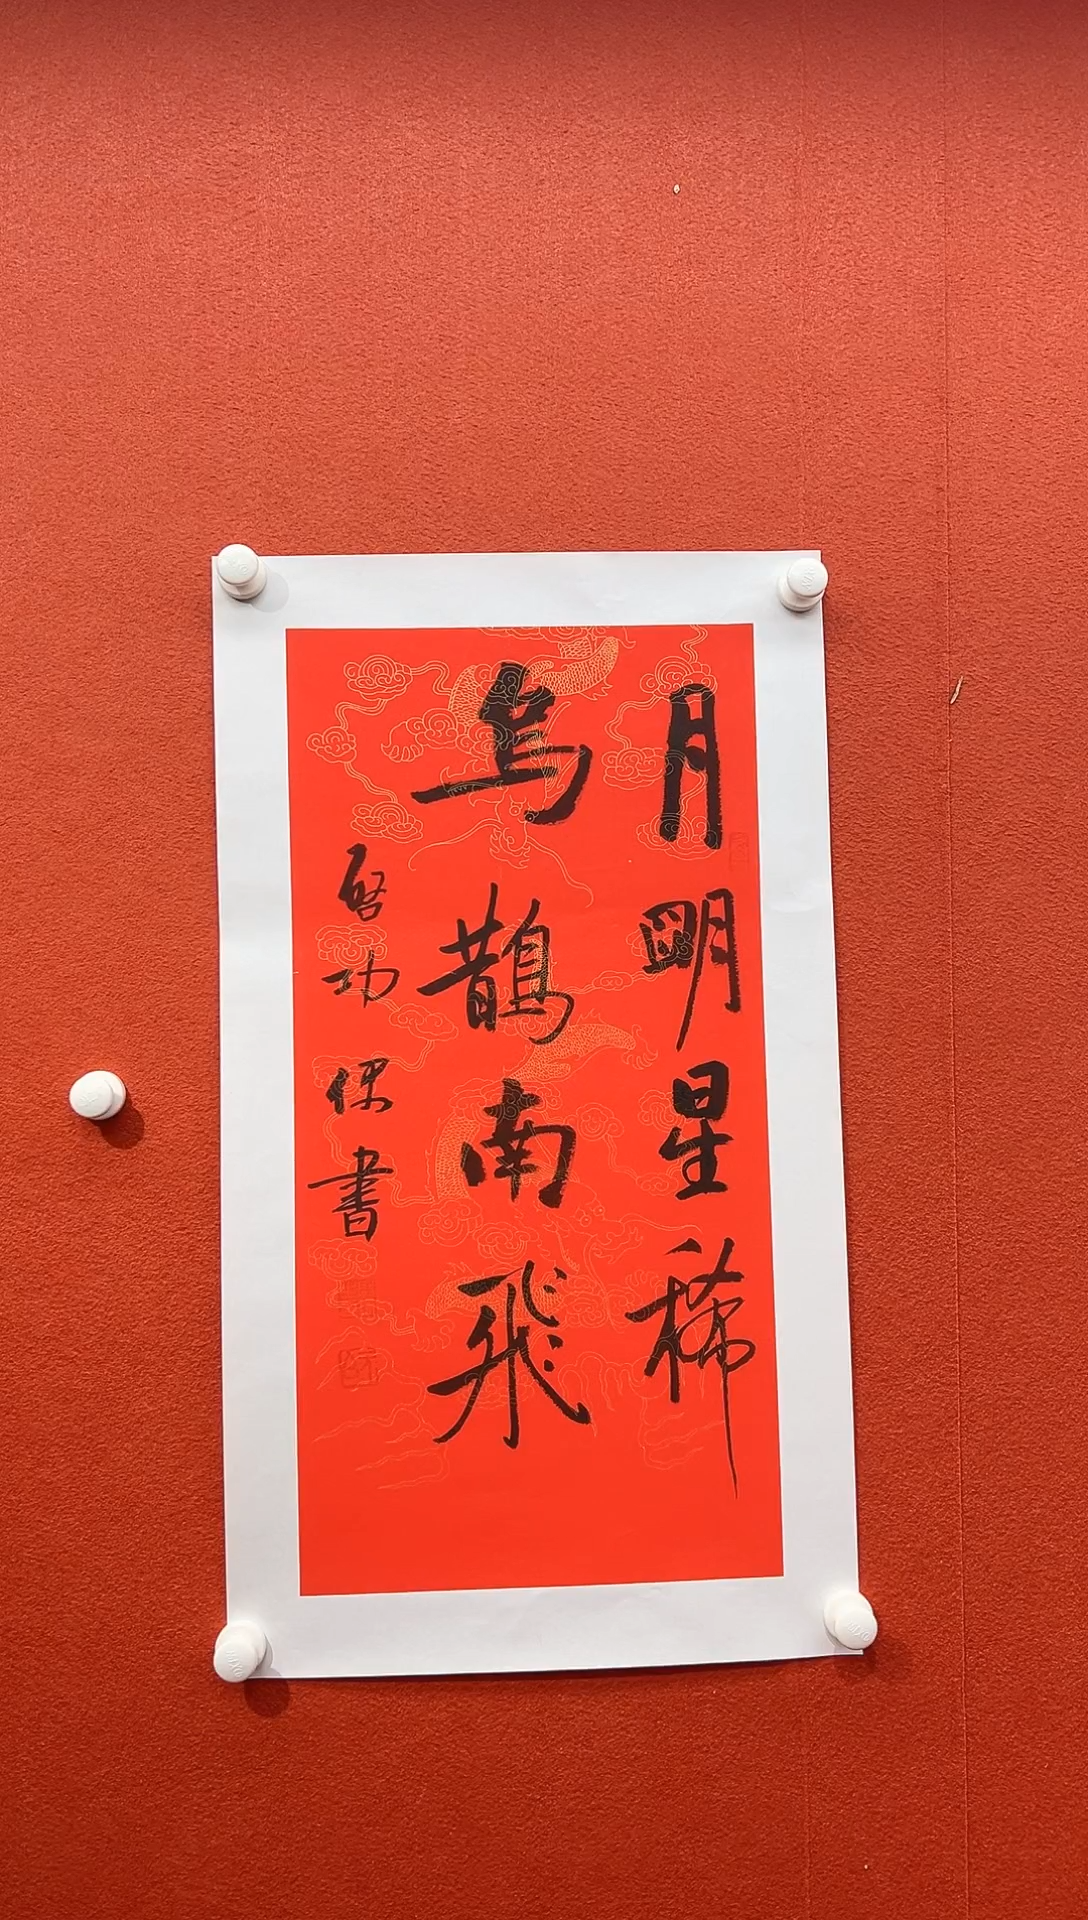 月明星稀
烏鵲南飛
啓功偶書